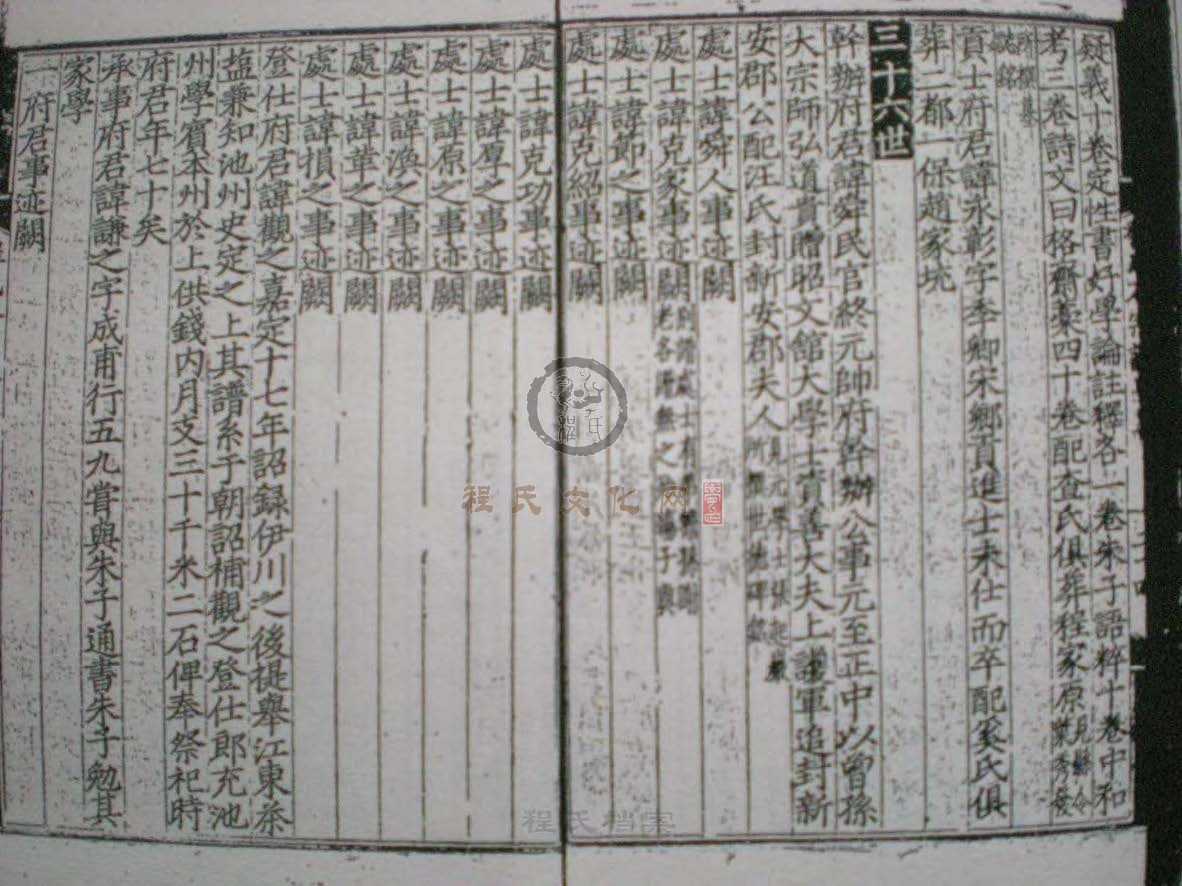 疑義十卷定性書好學論註釋各一卷朱子語粹十卷中和
考三卷詩文曰格齋藁四十卷配查氏俱葬程家原見縣令
所撰墓
誌銘
貢士府君諱永彰字季卿宋鄉貢進士未仕而卒配奚氏俱
葬二都一保趙家坑
三十六世
幹辦府君諱舜民官終元帥府幹辦公事元至正中以曾孫
大宗師弘道貴贈昭文館大學士資善大夫上護軍追封新
安郡公配汪氏封新安郡夫人
處士諱舜人事迹闕
處士諱克家事迹闕
處士諱節之事迹闕
處士諱克紹事迹闕
處士諱克功事迹闕
處士諱厚之事迹闕
處士諱原之事迹闕
處士諱渙之事迹闕
處士諱華之事迹闕
處士諱損之事迹闕
登仕府君諱觀之嘉定十七年詔録伊川之後提舉江東茶
盐兼知池州史定之上其譜系于朝詔補觀之登仕郎充池
州學賓本州於上供錢内月支三十千米二石俾奉祭祀時
府君年七十矣
承事府君諱謙之字成甫行五九嘗與朱子通書朱子勉其
家學
一府君事迹闕
程氏文化网
程氏档案